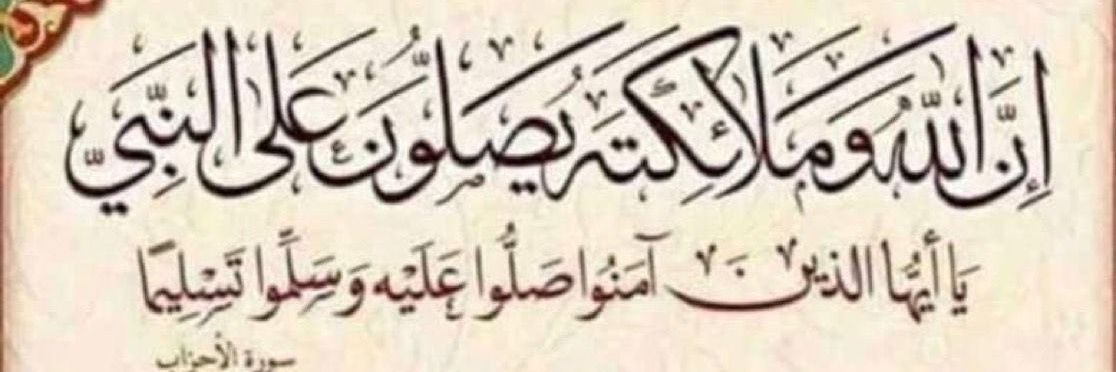 إِنَّ اللَّهَ وَمَلَائِكَتَهُ يُصَلُّونَ عَلَى النَّبِيِّ
يَا أَيُّهَا الَّذِينَ آمَنُوا صَلُّوا عَلَيْهِ وَسَلِّمُوا تَسْلِيمًا
سورة الأحزاب